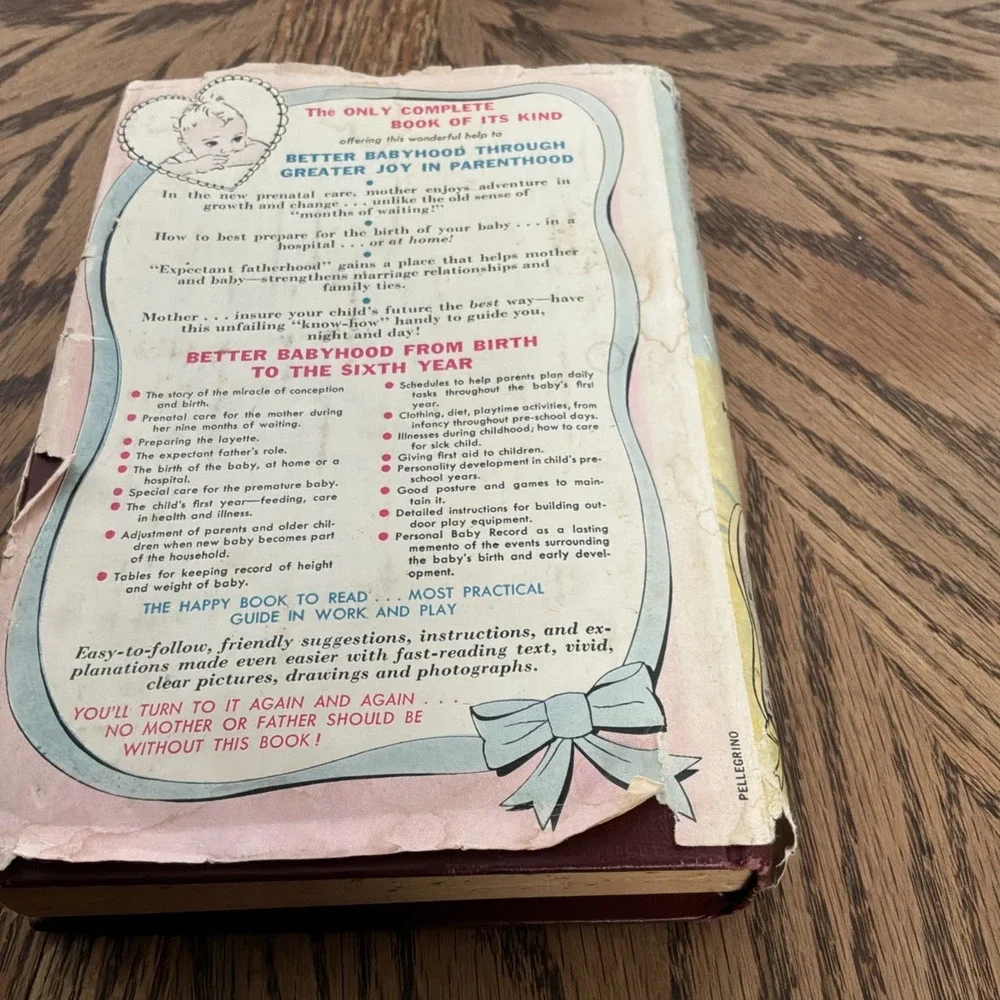 The ONLY COMPLETE
BOOK OF ITS KIND
offering this wonderful help to
BETTER BABYHOOD THROUGH
GREATER JOY IN PARENTHOOD
In the new prenatal care, mother enjoys adventure in
growth and change . . . unlike the old sense of
"months of waiting!"
How to best prepare for the birth of your baby . . . in a
hospital . . . or at home!
"Expectant fatherhood" gains a place that helps mother
and baby—strengthens marriage relationships and
family ties.
Mother . . . insure your child's future the best way—have
this unfailing "know-how" handy to guide you,
night and day!
BETTER BABYHOOD FROM BIRTH
TO THE SIXTH YEAR
● The story of the miracle of conception
and birth.
● Prenatal care for the mother during
her nine months of waiting.
● Preparing the layette.
● The expectant father's role.
● The birth of the baby, at home or a
hospital.
● Special care for the premature baby.
● The child's first year—feeding, care
in health and illness.
● Adjustment of parents and older chil-
dren when new baby becomes part
of the household.
● Tables for keeping record of height
and weight of baby.
● Schedules to help parents plan daily
tasks throughout the baby's first
year.
● Clothing, diet, playtime activities, from
infancy throughout pre-school days.
● Illnesses during childhood; how to care
for sick child.
● Giving first aid to children.
● Personality development in child's pre-
school years.
● Good posture and games to main-
tain it.
● Detailed instructions for building out-
door play equipment.
● Personal Baby Record as a lasting
memento of the events surrounding
the baby's birth and early devel-
opment.
THE HAPPY BOOK TO READ . . . MOST PRACTICAL
GUIDE IN WORK AND PLAY
Easy-to-follow, friendly suggestions, instructions, and ex-
planations made even easier with fast-reading text, vivid,
clear pictures, drawings and photographs.
YOU'LL TURN TO IT AGAIN AND AGAIN . . . .
NO MOTHER OR FATHER SHOULD BE
WITHOUT THIS BOOK!
PELLEGRINO